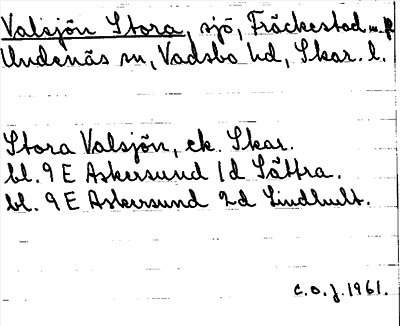 Valsjön Stora, sjö, Fräckestad m. fl.
Undenäs sn, Vadsbo hd, Skar. l.
Stora Valsjön, ek. Skar.
bl. 9 E Askersund 1d Sättra.
bl. 9 E Askersund 2d Lindhult.
c.o.j. 1961.